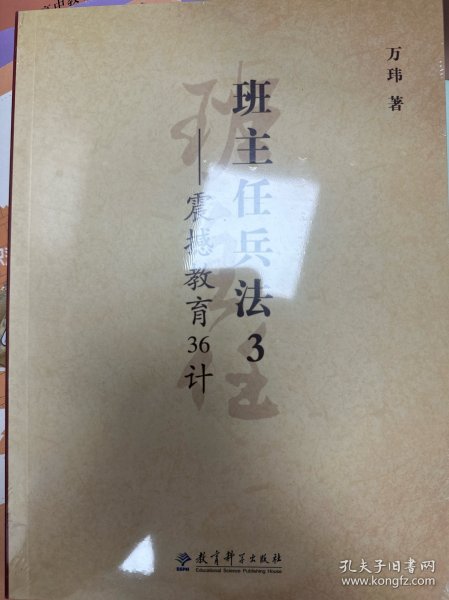 万玮 著
班主任兵法3
——震撼教育36计
教育科学出版社
Educational Science Publishing House
ESPH
孔夫子旧书网
www.kongfz.com